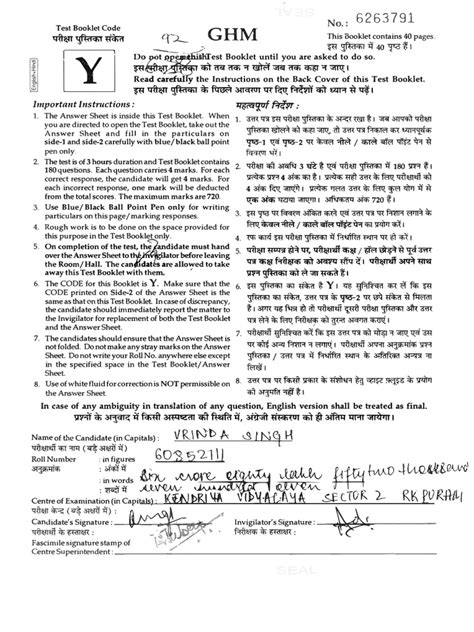 SEAL
Test Booklet Code
परीक्षा पुस्तिका संकेत
92
GHM
No. : 6263791
This Booklet contains 40 pages.
इस पुस्तिका में 40 पृष्ठ हैं।
English+Hindi
Y
Do not open this Test Booklet until you are asked to do so.
इस परीक्षा पुस्तिका को तब तक न खोलें जब तक कहा न जाए।
Read carefully the Instructions on the Back Cover of this Test Booklet.
इस परीक्षा पुस्तिका के पिछले आवरण पर दिए निर्देशों को ध्यान से पढ़ें।
Important Instructions :
1. The Answer Sheet is inside this Test Booklet. When
you are directed to open the Test Booklet, take out the
Answer Sheet and fill in the particulars on
side-1 and side-2 carefully with blue/black ball point
pen only.
2. The test is of 3 hours duration and Test Booklet contains
180 questions. Each question carries 4 marks. For each
correct response, the candidate will get 4 marks. For
each incorrect response, one mark will be deducted
from the total scores. The maximum marks are 720.
3. Use Blue/Black Ball Point Pen only for writing
particulars on this page/marking responses.
4. Rough work is to be done on the space provided for
this purpose in the Test Booklet only.
5. On completion of the test, the candidate must hand
over the Answer Sheet to the Invigilator before leaving
the Room/Hall. The candidates are allowed to take
away this Test Booklet with them.
6. The CODE for this Booklet is Y. Make sure that the
CODE printed on Side-2 of the Answer Sheet is the
same as that on this Test Booklet. In case of discrepancy,
the candidate should immediately report the matter to
the Invigilator for replacement of both the Test Booklet
and the Answer Sheet.
7. The candidates should ensure that the Answer Sheet is
not folded. Do not make any stray marks on the Answer
Sheet. Do not write your Roll No. anywhere else except
in the specified space in the Test Booklet/Answer
Sheet.
8. Use of white fluid for correction is NOT permissible on
the Answer Sheet.
महत्वपूर्ण निर्देश :
1. उत्तर पत्र इस परीक्षा पुस्तिका के अन्दर रखा है। जब आपको परीक्षा
पुस्तिका खोलने को कहा जाए, तो उत्तर पत्र निकाल कर ध्यानपूर्वक
पृष्ठ-1 एवं पृष्ठ-2 पर केवल नीले / काले बॉल पॉइंट पेन से
विवरण भरें।
2. परीक्षा की अवधि 3 घंटे है एवं परीक्षा पुस्तिका में 180 प्रश्न हैं।
प्रत्येक प्रश्न 4 अंक का है। प्रत्येक सही उत्तर के लिए परीक्षार्थी को
4 अंक दिए जाएंगे। प्रत्येक गलत उत्तर के लिए कुल योग में से
एक अंक घटाया जाएगा। अधिकतम अंक 720 हैं।
3. इस पृष्ठ पर विवरण अंकित करने एवं उत्तर पत्र पर निशान लगाने के
लिए केवल नीले / काले बॉल पॉइंट पेन का प्रयोग करें।
4. रफ कार्य इस परीक्षा पुस्तिका में निर्धारित स्थान पर ही करें।
5. परीक्षा सम्पन्न होने पर, परीक्षार्थी कक्ष / हॉल छोड़ने से पूर्व उत्तर
पत्र कक्ष निरीक्षक को अवश्य सौंप दें। परीक्षार्थी अपने साथ
प्रश्न पुस्तिका को ले जा सकते हैं।
6. इस पुस्तिका का संकेत है Y। यह सुनिश्चित कर लें कि इस
पुस्तिका का संकेत, उत्तर पत्र के पृष्ठ-2 पर छपे संकेत से मिलता
है। अगर यह भिन्न हो तो परीक्षार्थी दूसरी परीक्षा पुस्तिका और उत्तर
पत्र लेने के लिए निरीक्षक को तुरन्त अवगत कराएं।
7. परीक्षार्थी सुनिश्चित करें कि इस उत्तर पत्र को मोड़ा न जाए एवं उस
पर कोई अन्य निशान न लगाएं। परीक्षार्थी अपना अनुक्रमांक प्रश्न
पुस्तिका / उत्तर पत्र में निर्धारित स्थान के अतिरिक्त अन्यत्र ना
लिखें।
8. उत्तर पत्र पर किसी प्रकार के संशोधन हेतु व्हाइट फ्लूइड के प्रयोग
की अनुमति नहीं है।
In case of any ambiguity in translation of any question, English version shall be treated as final.
प्रश्नों के अनुवाद में किसी अस्पष्टता की स्थिति में, अंग्रेजी संस्करण को ही अंतिम माना जायेगा।
Name of the Candidate (in Capitals) : VRINDA SINGH
परीक्षार्थी का नाम (बड़े अक्षरों में) :
Roll Number : in figures 60852711
अनुक्रमांक : अंकों में
: in words Six crore eighty lakh fifty two thousand
: शब्दों में seven hundred eleven
Centre of Examination (in Capitals) : KENDRIYA VIDYALAYA SECTOR 2 RK PURAM
परीक्षा केन्द्र (बड़े अक्षरों में) :
Candidate's Signature :
Invigilator's Signature :
परीक्षार्थी के हस्ताक्षर :
निरीक्षक के हस्ताक्षर :
Fascimile signature stamp of
Centre Superintendent :
SEAL